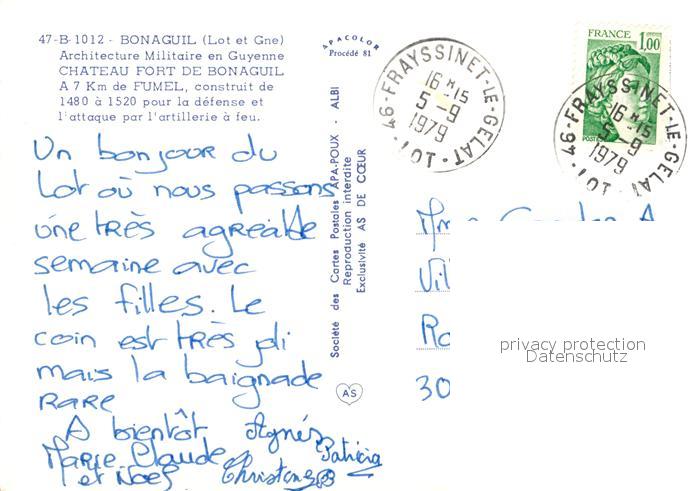 47-B-1012 - BONAGUIL (Lot et Gne)
Architecture Militaire en Guyenne
CHATEAU FORT DE BONAGUIL
A 7 Km de FUMEL, construit de
1480 à 1520 pour la défense et
l'attaque par l'artillerie à feu.
Un bonjour du
Lot où nous passons
une très agréable
semaine avec
les filles. Le
coin est très joli
mais la baignade
rare
A bientôt Agnès
Marie Claude Patricia
et Noël Christone
APACOLOR
Procédé 81
Société des Cartes Postales APA-POUX - ALBI
Reproduction interdite
Exclusivité AS DE CŒUR
AS
46-FRAYSSINET-LE-GELAT
16 H 15
5-9
1979
LOT
FRANCE
1,00
POSTES
46-FRAYSSINET-LE-GELAT
16 H 15
5-9
1979
LOT
Mme
Vil
Ro
30
privacy protection
Datenschutz